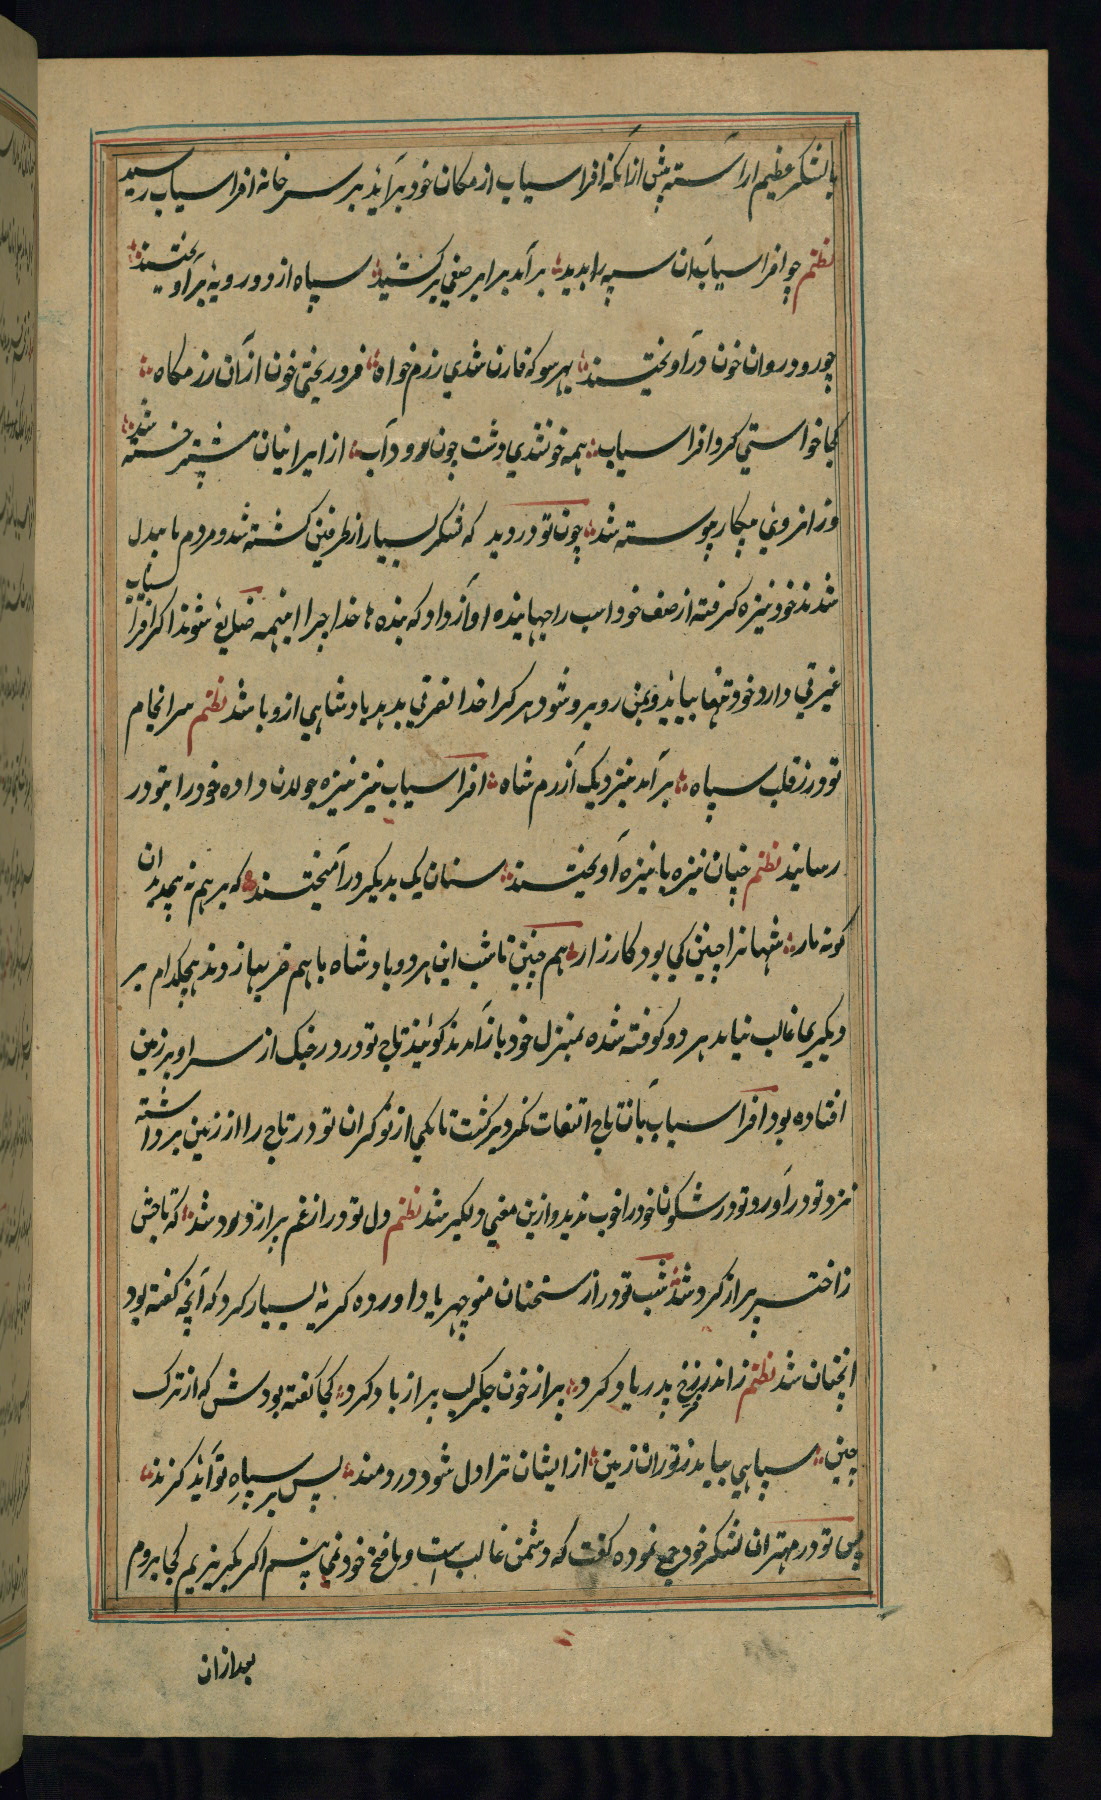 بالشکر عظیم اراسته پیش ازانکه افراسیاب از مکان خود برآید بر سر خانه افراسیاب رسید
نظم چو افراسیاب آن سپه را بدید برآمد برابر صفی برکشید سپاه از دو رویه برآویختند
چو رود روان خون درآویختند بهر سو که قارن شدی رزم خواه فرو ریختی خون ازان رزمگاه
کجا خواستی گرد افراسیاب همه خون شدی دشت چون رود آب از ایرانیان بیشتر خسته شد
وزانروی پیکار پیوسته شد چون تودر دید که لشکر بسیار از طرفین کشته شد و مردم نا بیدل
شدند خود نیزه گرفته از صف خود اسب را جهانیده اواز داد که بنده ها خدا چرا اینهمه ضایع شوند اگر افراسیاب
غیرتی دارد خود تنها بیاید و بمن روبرو شود هر کرا خدا نصرتی بدهد پادشاهی ازو باشد نظم سرانجام
تودر ز قلب سپاه برآمد بنزدیک آزرم شاه افراسیاب نیز نیزه جولان داده خود را بتودر
رسانید نظم چنان نیزه بانیزه آویختند سنان یک بدیگر درآمیختند که بر هم نه پیچد بدان
گونه مار شهانرا چنین کی بود کارزار هم چنین تا شب این هر دو پادشاه باهم ضربها زدند هیچکدام بر
دیگری غالب نیامد هر دو کوفته شده بمنزل خود باز آمدند گویند تاج تودر در جنگ از سر او بر زمین
افتاده بود افراسیاب بآن تاج التفات نکرد و برگشت تا یکی از نوکران تودر تاج را از زمین برداشته
نزد تودر آورد تودر شگون خود را خوب ندید و ازین معنی دلگیر شد نظم دل تودر از غم پر از دود شد که تاجش
ز اختر پر از گرد شد شب تودر از سخنان منوچهر یاد اورده گریه بسیار کرد که آنچه گفته بود
انچنان شد نظم ز اندرز فرخ پدر یاد کرد پر از خون جگر لب پر از باد کرد کجا گفته بودش که از ترک
چین سپاهی بیاید ز توران زمین از ایشان ترا دل شود دردمند پس بر سپاه تو آید گزند
پس تودر مهتران لشکر خود جمع نموده گفت که دشمن غالب است و ما فتح خود نمی بینیم اگر بگریزیم کجا برویم
بعد ازان